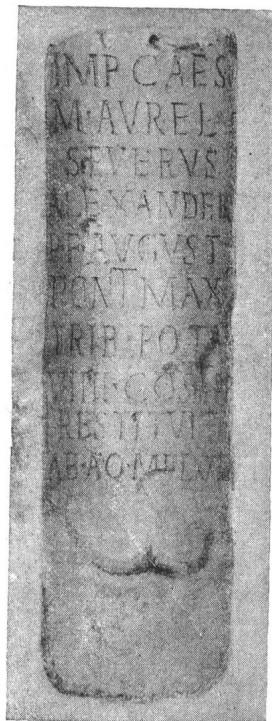 IMP CAES
M·AVREL
SEVERVS
ALEXANDER
PF AVGVST
PONT MAX
TRIB·POT
VIIII·COS
RESTITVIT
AB·AQ·MP